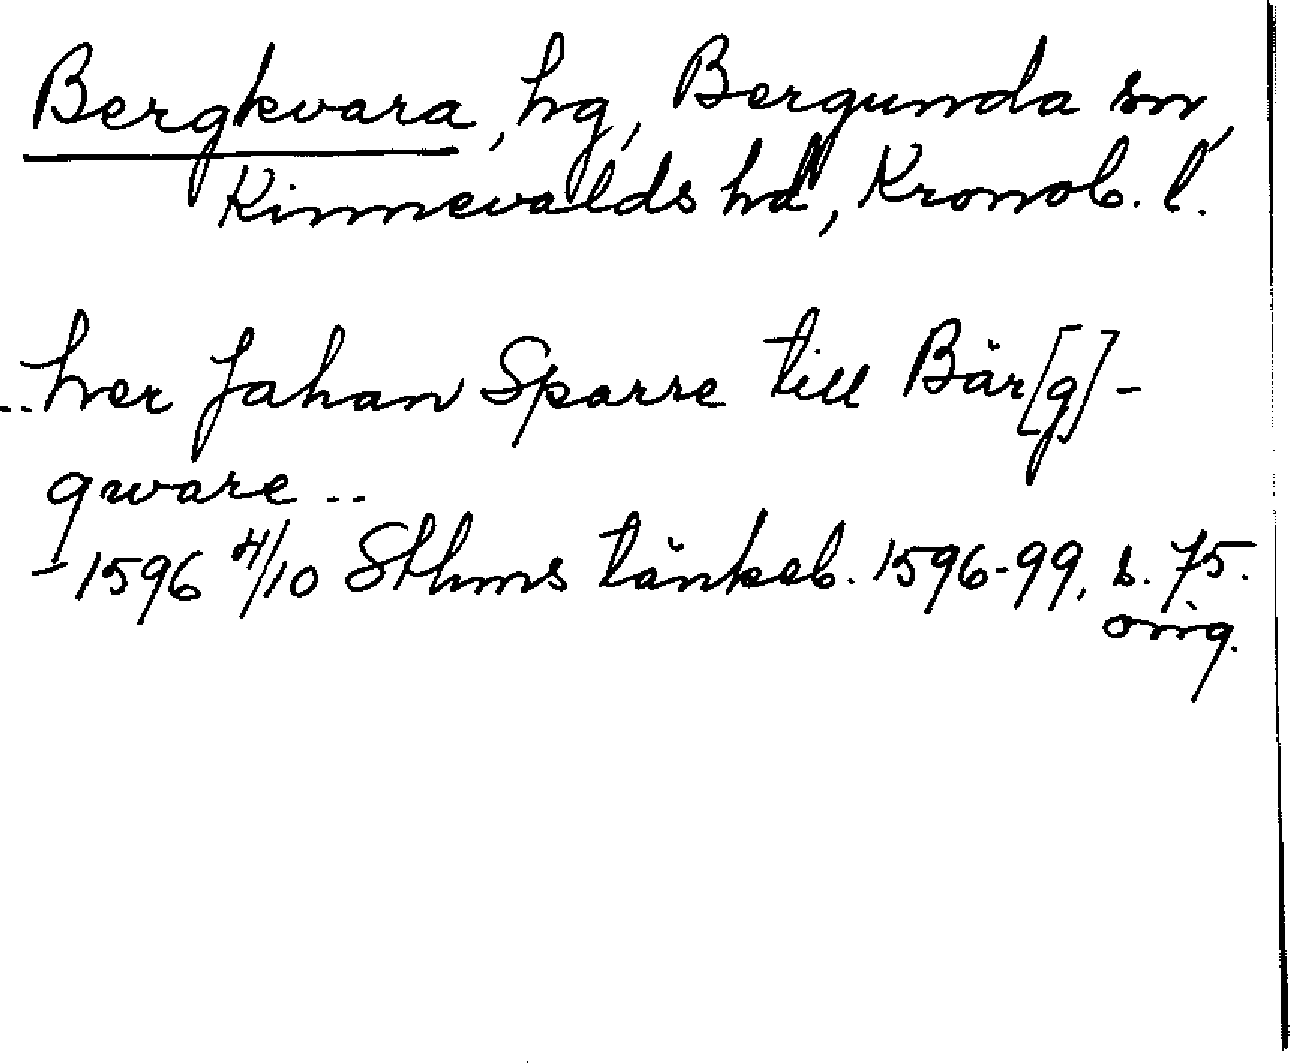 Bergkvara, hg, Bergunda sn,
Kinnevalds hd, Kronob. l.
..her Jahan Sparre till Bär[g]-
qware ..
1596 4/10 Sthms tänkeb. 1596-99, s. 75.
orig.